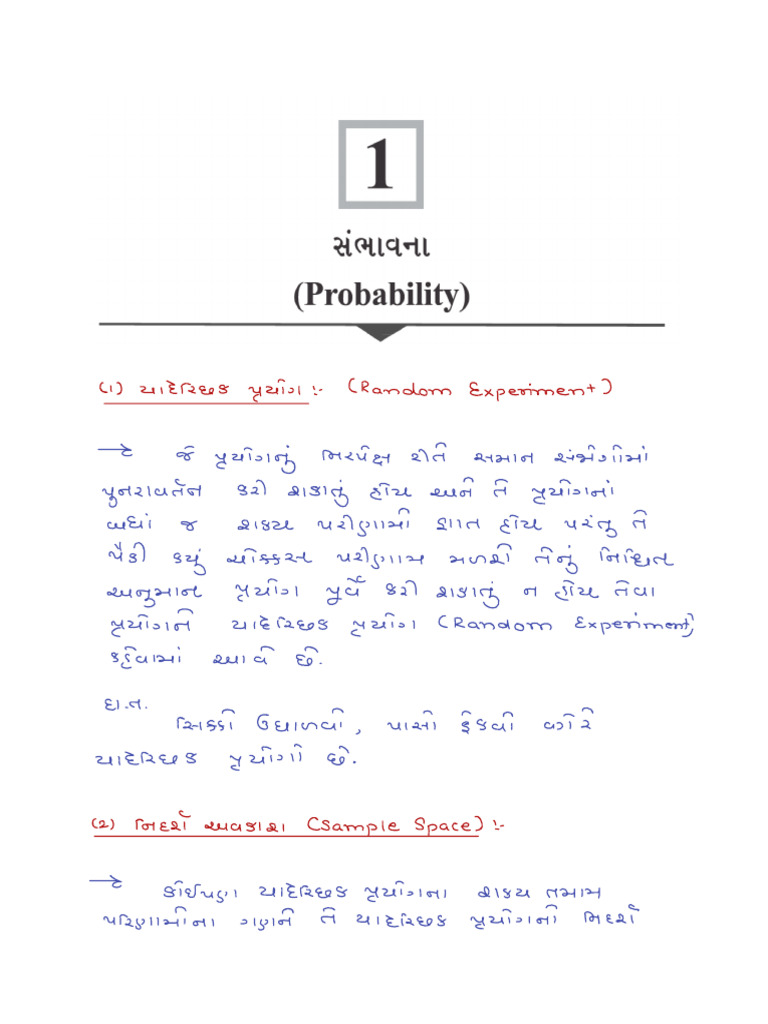 1
સંભાવના
(Probability)
(1) યાદૈચ્છિક પ્રયોગ :- (Random Experiment)
→ જે પ્રયોગનું નિરપેક્ષ રીતે સમાન સંજોગોમાં
પુનરાવર્તન કરી શકાતું હોય અને તે પ્રયોગનાં
બધાં જ શક્ય પરીણામો જ્ઞાત હોય પરંતુ તે
પૈકી કયું ચોક્કસ પરીણામ મળશે તેનું નિશ્ચિત
અનુમાન પ્રયોગ પૂર્વે કરી શકાતું ન હોય તેવા
પ્રયોગને યાદૈચ્છિક પ્રયોગ (Random Experiment)
કહેવામાં આવે છે.
દા.ત.
સિક્કો ઉછાળવો, પાસો ફેંકવો વગેરે
યાદૈચ્છિક પ્રયોગો છે.
(2) નિદર્શ અવકાશ (Sample Space) :-
→ કોઈપણ યાદૈચ્છિક પ્રયોગના શક્ય તમામ
પરિણામોના ગણને તે યાદૈચ્છિક પ્રયોગનો નિદર્શ